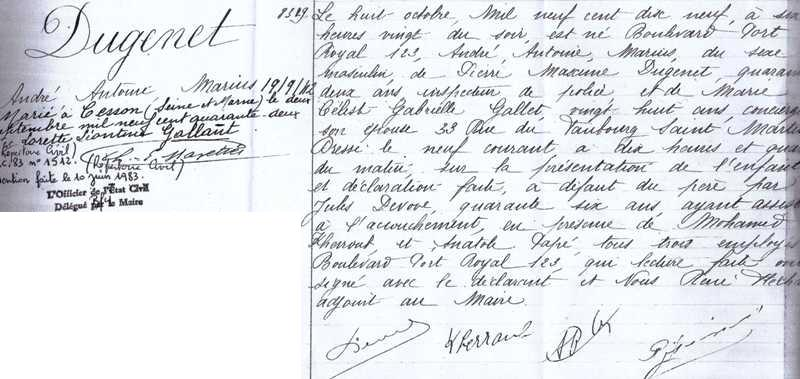 Dugenet
André Antoine Marius
Marié à Cesson (Seine et Marne) le deux
septembre mil neuf cent quarante deux
Gallant
Répertoire Civil
(Répertoire Civil)
mention faite le 10 juin 1983.
L'Officier de l'État Civil
Délégué par le Maire
8329. Le huit octobre, Mil neuf cent dix neuf, à six
heures vingt du soir, est né Boulevard Port
Royal 123, André, Antoine, Marius, du sexe
masculin, de Pierre Maxime Dugenet, quaran
deux ans inspecteur de police et de Marie
Célest Gabrielle Gallet, vingt huit ans, concierg
son épouse 33 Rue du Faubourg Saint Martin
Dressé le neuf courant à dix heures et qua
du matin, sur la présentation de l'enfant
et déclaration faite, à défaut du père par
Jules Devove, quarante six ans ayant assis
à l'accouchement, en présence de Mohamed
Kherroubi, et Anatole Papé, tous trois employé
Boulevard Port Royal 123, qui lecture faite ont
signé avec le déclarant et Nous René
adjoint au Maire.